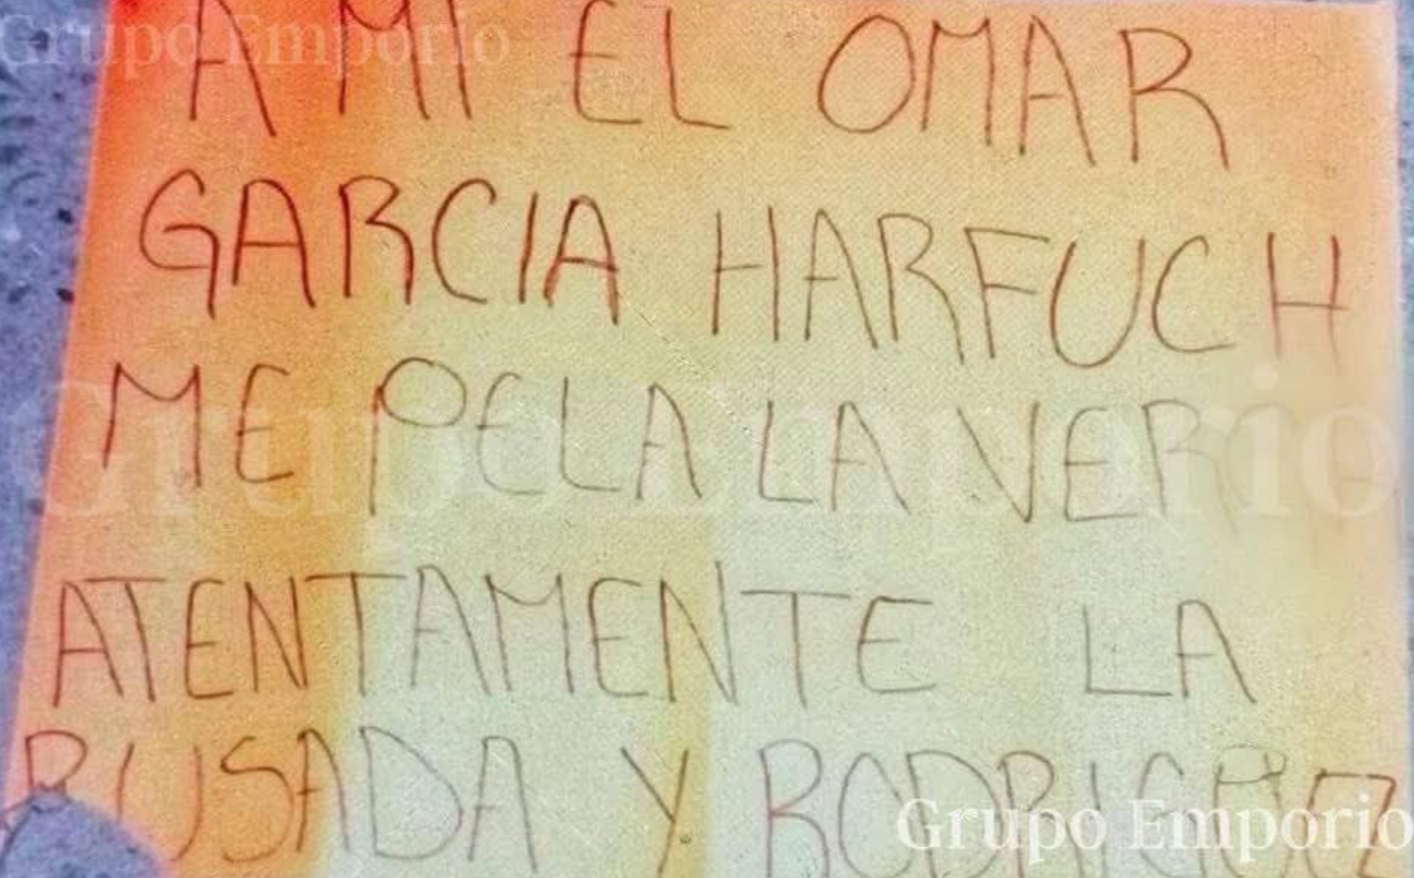 Grupo Emporio
A MI EL OMAR
GARCIA HARFUCH
ME PELA LA VER
Grupo Emporio
ATENTAMENTE LA
RUSADA Y RODRIGUEZ
Grupo Emporio